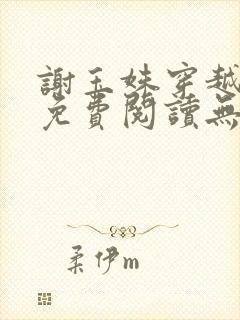 謝玉姝穿越
免費閱讀無
柔伊m